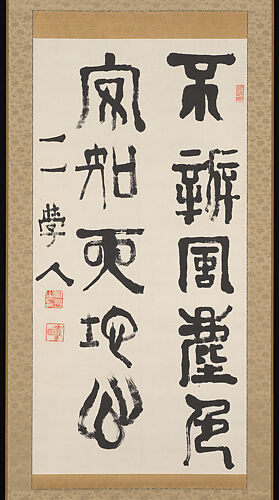 不辨風塵色
安知天地心
二學人